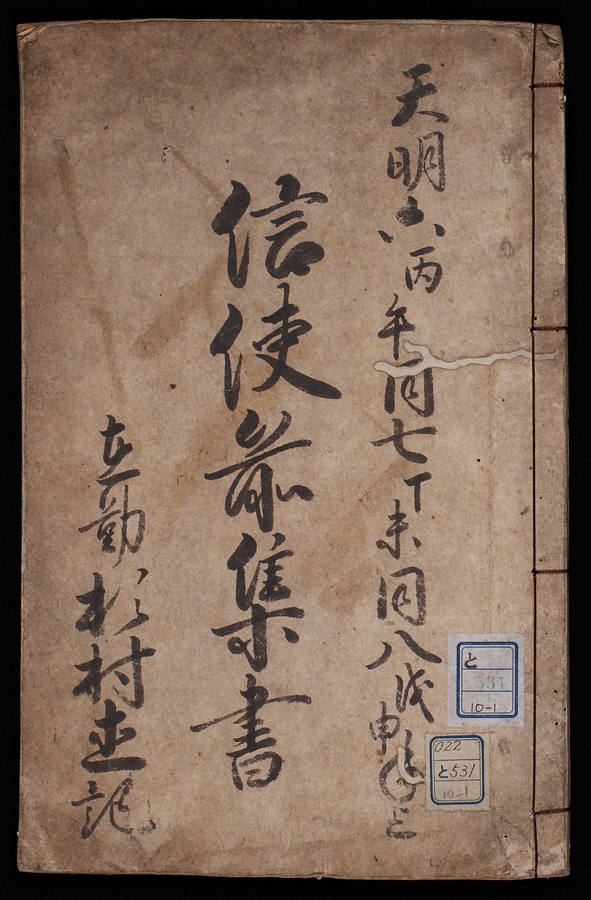 天明六丙午同七丁未同八戊申年之
信使前集書
在勤杉村直記
と
531
10-1
022
と531
10-1